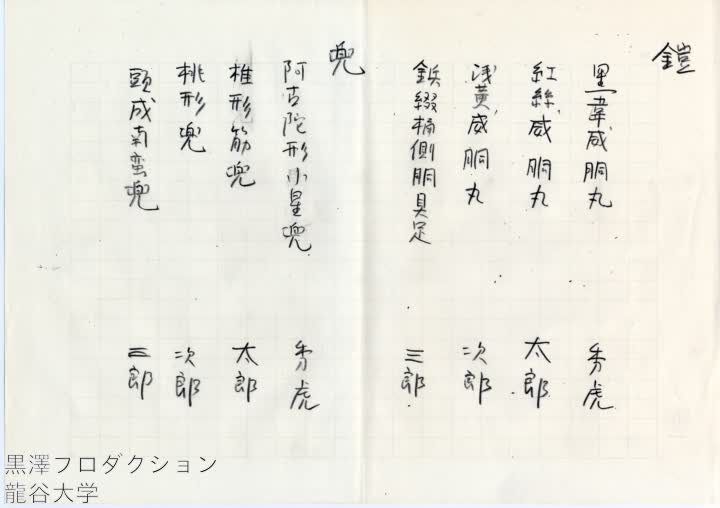 鎧
黒韋威胴丸 秀虎
紅絲威胴丸 太郎
浅黄威胴丸 次郎
鋲綴桶側胴具足 三郎
兜
阿古陀形小星兜 秀虎
椎形筋兜 太郎
桃形兜 次郎
頭成南蛮兜 三郎
黒澤プロダクション
龍谷大学